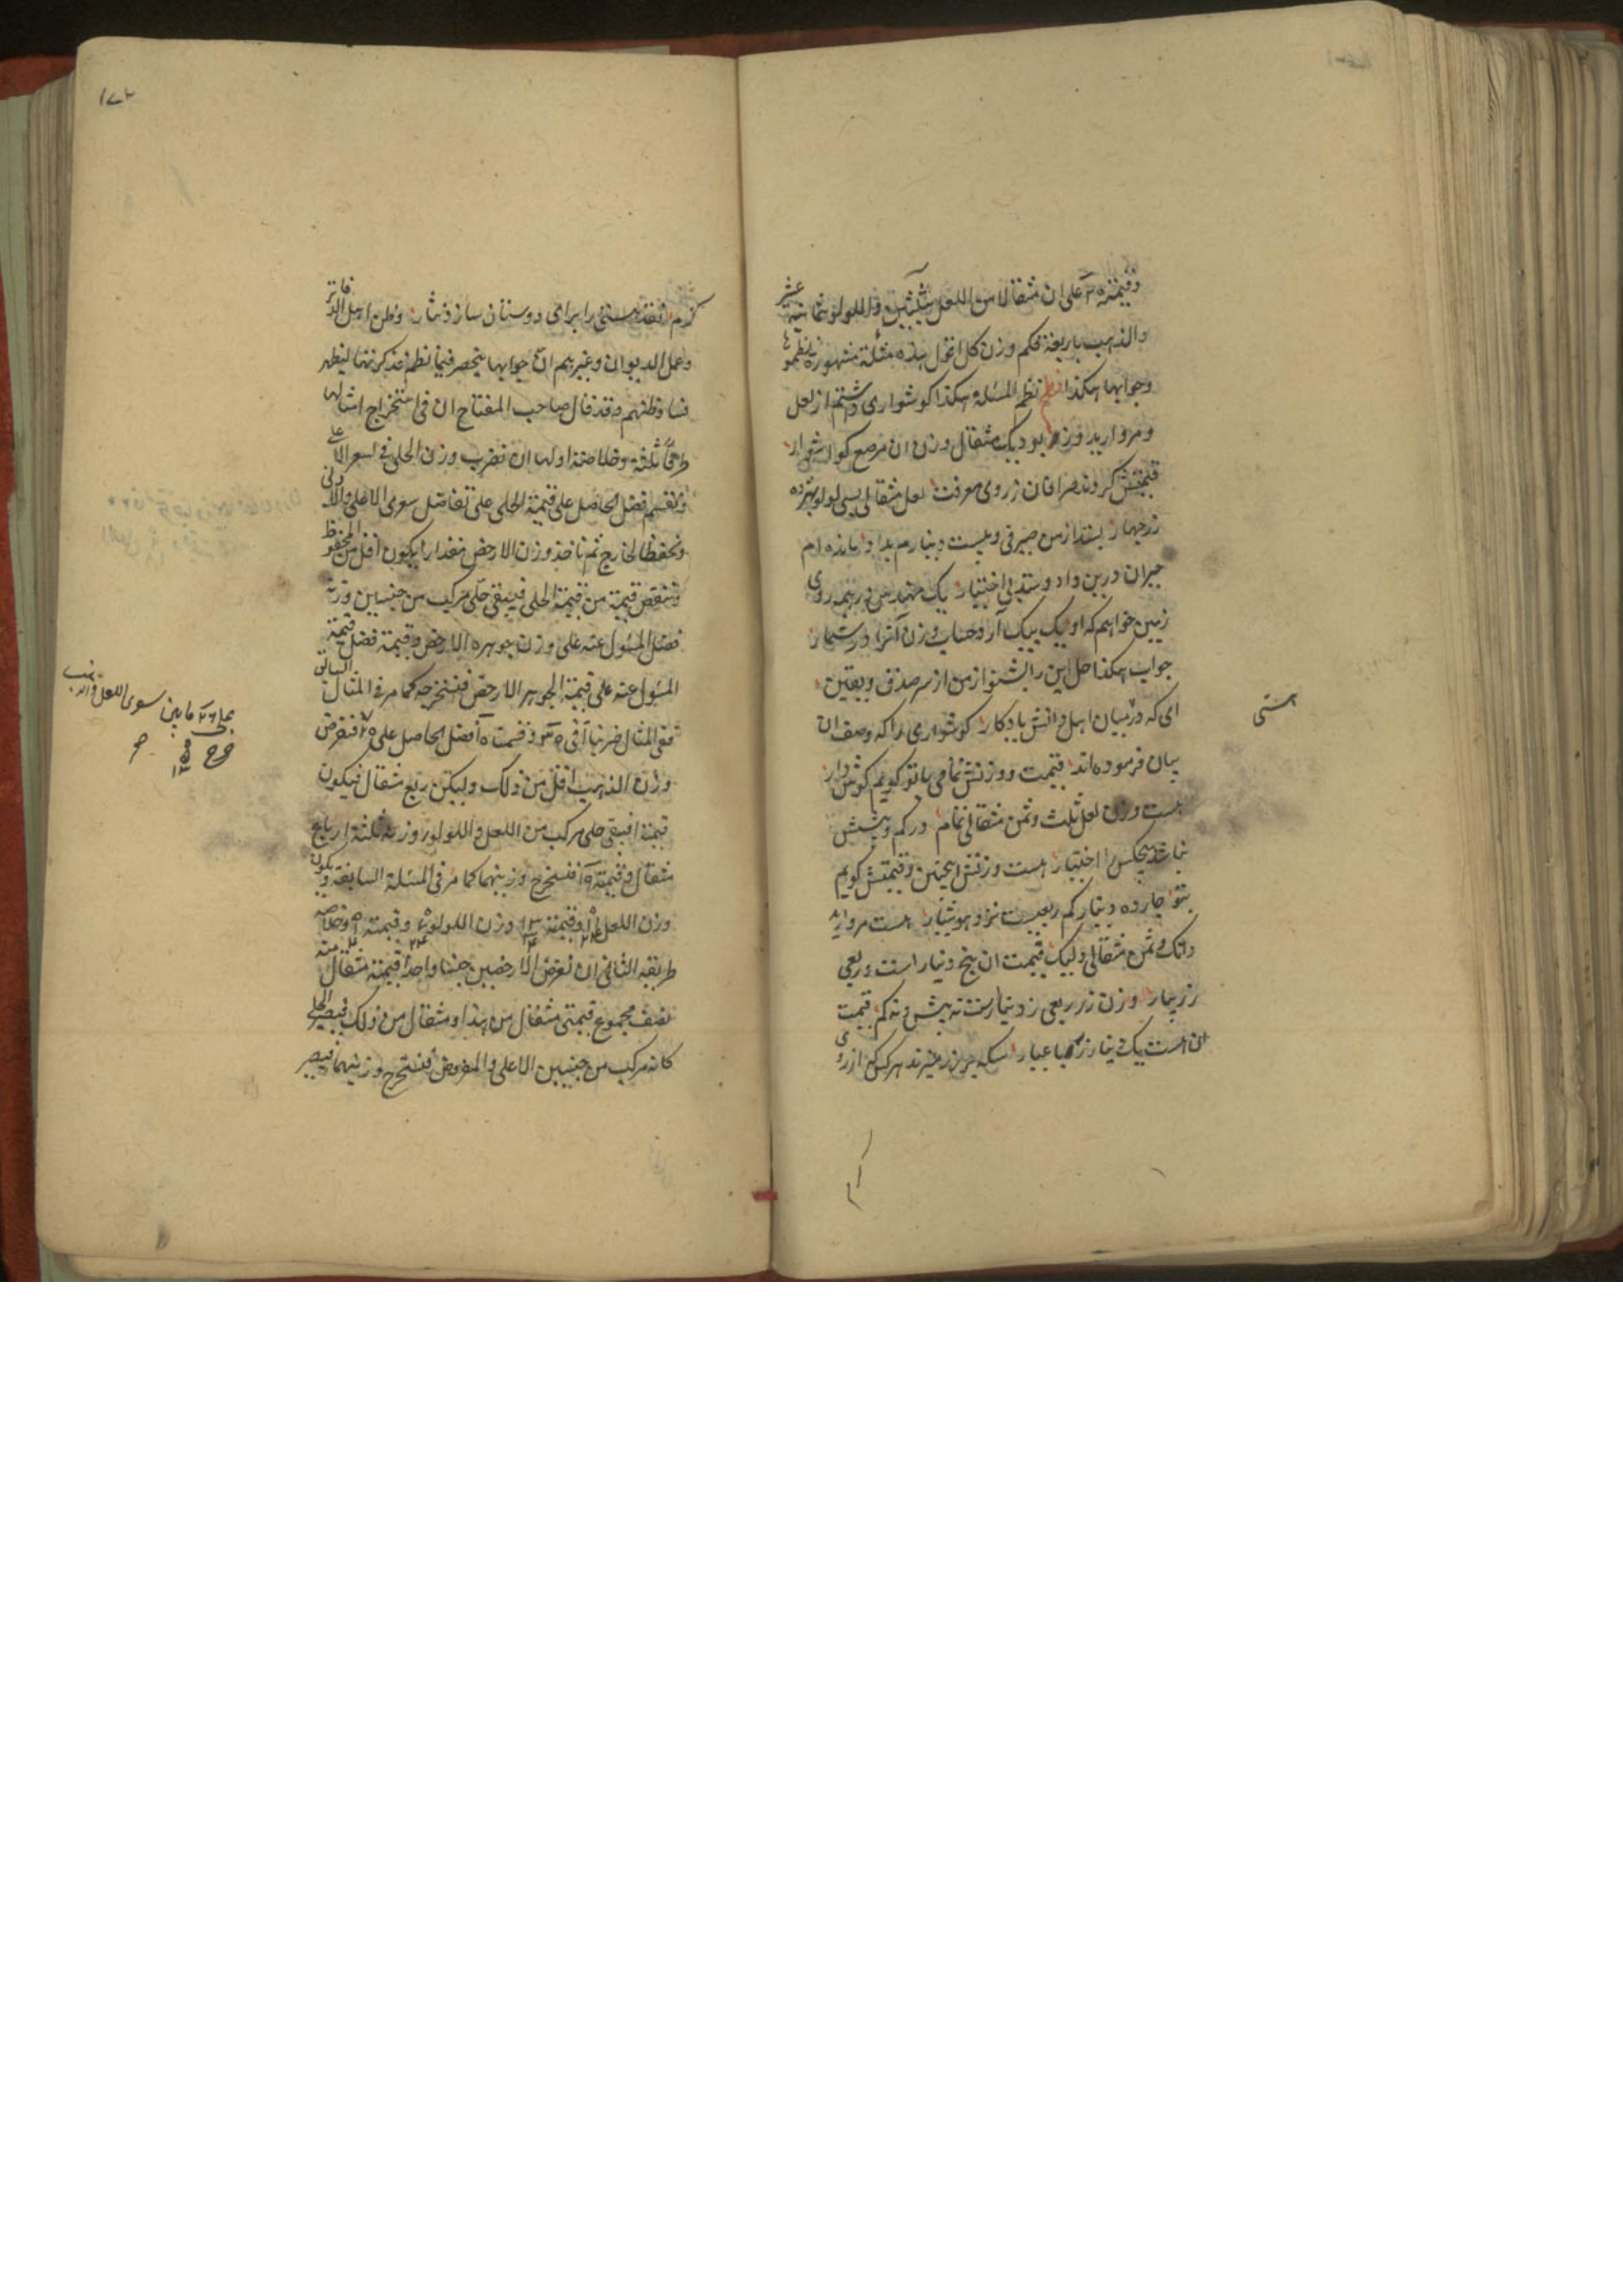 وقیمته ٢٠ علی ان مثقالا من اللعل بثلثین واللولو بثمانیة عشر
والذهب باربعة فکم وزن کل اقول هذه مسئلة مشهورة نظموها
وجوابها هکذا نظم المسئلة هکذا کوشواری داشتم از لعل
و مروارید و زر بود یک مثقال وزن ان مرصع کوشوار
قیمتش کردند صرافان ز روی معرفت لعل مثقالی بسی لولو بهژده
زر چهار بستد از من صیرفی و بیست دینارم بداد مانده ام
حیران درین داد و ستد بی اختیار یک مهندس در همه روی
زمین خواهم که او یک بیک ارد حساب وزن آنرا در شمار
جواب هکذا حل این را بشنو از من از سر صدق و یقین
ای که در میان اهل دانش یادکار کوشواری را که وصف ان
بیان فرموده اند قیمت و وزنش تمامی با تو کویم کوش دار
هست وزن لعل ثلث و ثمن مثقالی تمام در کم و بیشش
نباشد هیچکس را اختیار هست وزنش اینچنین و قیمتش کویم
بتو چارده دینار کم ربعیست نزد هوشیار هست مروارید
دانک و ثمن مثقالی ولیک قیمت ان پنج دینار است و ربعی
زر بیار وزن زر ربعی ز دینارست نه بیش و نه کم قیمت
ان هست یک دینار زر با عیار سکه بر زر میزند هر کس از روی
هستی
١٧٢
کرم نقد هستی را برای دوستان سازد نثار وظن اهل الدفاتر
وعمل الدیوان وغیرهم ان جوابها ینحصر فیما نظم فذکرنتها لیظهر
فساد ظنهم وقد قال صاحب المفتاح ان فی استخراج امثالها
طرقا ثلثة وخلاصة اولها ان نضرب وزن الحلی فی السعر الاعلی
ونقسم فضل الحاصل علی قیمة الحلی علی تفاضل سعری الاعلی والادنی
ونحفظ الخارج ثم ناخذ وزن الارخص مقدارا یکون اقل من المحفوظ
وننقص قیمته من قیمة الحلی فیبقی حلی مرکب من جنسین وزنه
فضل المسئول عنه علی وزن جوهره الارخص وقیمته فضل قیمة
المسئول عنه علی قیمة الجوهر الارخص فنستخرجه کما مر فی المثال السابق
ففی المثال ضربنا آ فی ٣٠ وقسمت ١٠ فضل الحاصل علی ٢٠ فنفرض
وزن الذهب اقل من ذلک ولیکن ربع مثقال فیکون
قیمته ا فیبقی حلی مرکب من اللعل واللولو وزنه ثلثة ارباع
مثقال وقیمته ١٩ فنستخرج وزنیهما کما مر فی المسئلة السابقة ویکون
وزن اللعل وقیمته وزن اللولو وقیمته وخلاصة
طریقه الثانی ان نفرض الارخصین جنسا واحدا قیمة مثقال منه
نصف مجموع قیمتی مثقال من هذا ومثقال من ذلک فیصیر الحلی
کانه مرکب من جنسین الاعلی والمفروض فنستخرج وزنیهما فیصیر
علی ٢٦ مابین سوی اللعل والذهب